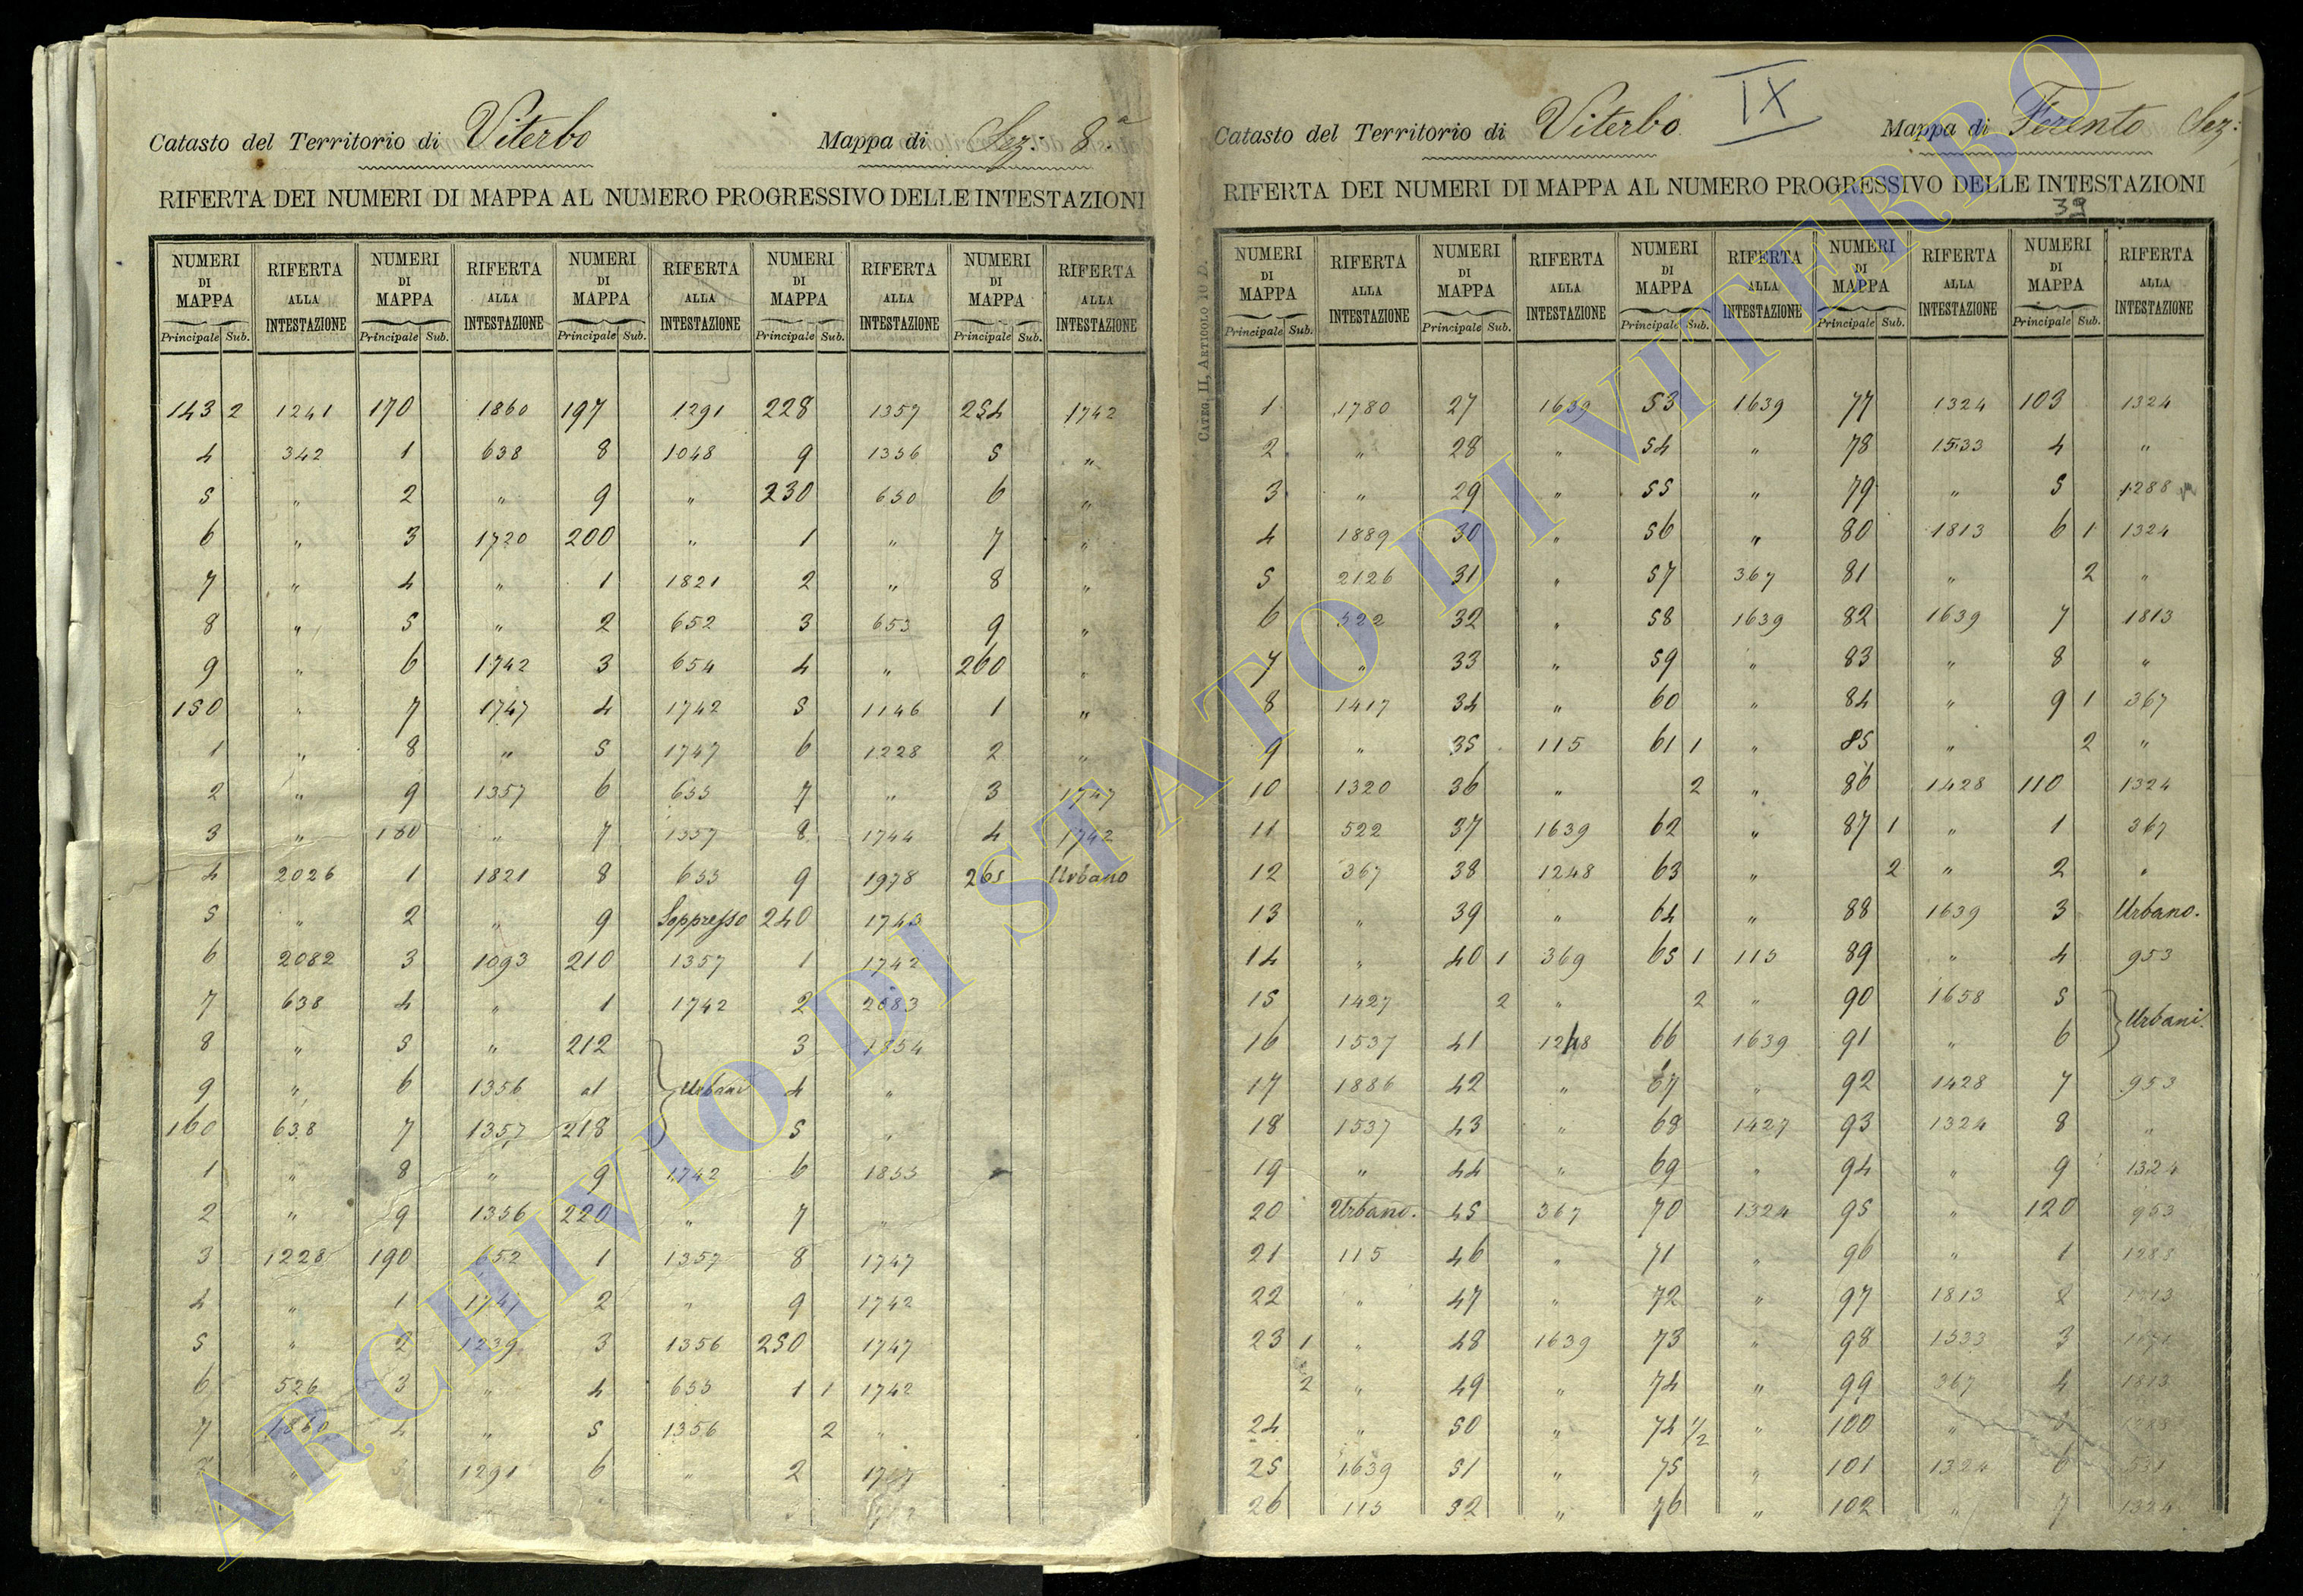 Catasto del Territorio di Viterbo Mappa di Sez: 8ª
RIFERTA DEI NUMERI DI MAPPA AL NUMERO PROGRESSIVO DELLE INTESTAZIONI
NUMERI DI MAPPA RIFERTA ALLA INTESTAZIONE NUMERI DI MAPPA RIFERTA ALLA INTESTAZIONE NUMERI DI MAPPA RIFERTA ALLA INTESTAZIONE NUMERI DI MAPPA RIFERTA ALLA INTESTAZIONE NUMERI DI MAPPA RIFERTA ALLA INTESTAZIONE
Principale Sub. Principale Sub. Principale Sub. Principale Sub. Principale Sub.
143 2 1241 170 1860 197 1291 228 1357 254 1742
4 342 1 638 8 1048 9 1356 5 "
5 " 2 " 9 " 230 650 6 "
6 " 3 1720 200 " 1 " 7 "
7 " 4 " 1 1821 2 " 8 "
8 " 5 " 2 652 3 653 9 "
9 " 6 1742 3 654 4 " 260 "
150 " 7 1747 4 1742 5 1146 1 "
1 " 8 " 5 1747 6 1228 2 "
2 " 9 1357 6 653 7 " 3 1747
3 " 180 " 7 1357 8 1744 4 1742
4 2026 1 1821 8 653 9 1978 265 Urbano
5 " 2 " 9 Soppresso 240 1743
6 2082 3 1093 210 1357 1 1742
7 638 4 " 1 1742 2 2083
8 " 5 " 212 3 1854
9 " 6 1356 al Urbani 4 "
160 638 7 1357 218 5 "
1 " 8 " 9 1742 6 1853
2 " 9 1356 220 " 7 "
3 1228 190 652 1 1357 8 1747
4 " 1 1747 2 " 9 1742
5 " 2 1239 3 1356 250 1747
6 526 3 " 4 653 1 1 1742
7 1860 4 " 5 1356 2 "
" 1291 6 " 2
Catasto del Territorio di Viterbo IX Mappa di Ferento Sez:
RIFERTA DEI NUMERI DI MAPPA AL NUMERO PROGRESSIVO DELLE INTESTAZIONI
39
CATEG. II, ARTICOLO 10 D.
NUMERI DI MAPPA RIFERTA ALLA INTESTAZIONE NUMERI DI MAPPA RIFERTA ALLA INTESTAZIONE NUMERI DI MAPPA RIFERTA ALLA INTESTAZIONE NUMERI DI MAPPA RIFERTA ALLA INTESTAZIONE NUMERI DI MAPPA RIFERTA ALLA INTESTAZIONE
Principale Sub. Principale Sub. Principale Sub. Principale Sub. Principale Sub.
1 1780 27 1639 53 1639 77 1324 103 1324
2 " 28 " 54 " 78 1533 4 "
3 " 29 " 55 " 79 " 5 1288
4 1889 30 " 56 " 80 1813 6 1 1324
5 2126 31 " 57 367 81 " 2 "
6 522 32 " 58 1639 82 1639 7 1813
7 " 33 " 59 " 83 " 8 "
8 1417 34 " 60 " 84 " 9 1 367
9 " 35 115 61 1 " 85 " 2 "
10 1320 36 " 2 " 86 1428 110 1324
11 522 37 1639 62 " 87 1 " 1 367
12 367 38 1248 63 " 2 " 2 "
13 " 39 " 64 " 88 1639 3 Urbano.
14 " 40 1 369 65 1 115 89 " 4 953
15 1427 2 " 2 " 90 1658 5
16 1537 41 1248 66 1639 91 " 6 Urbani.
17 1886 42 " 67 " 92 1428 7 953
18 1537 43 " 68 1427 93 1324 8 "
19 " 44 " 69 " 94 " 9 1324
20 Urbano. 45 367 70 1324 95 " 120 953
21 115 46 " 71 " 96 " 1 1288
22 " 47 " 72 " 97 1813 2 1813
23 1 " 48 1639 73 " 98 1533 3
2 " 49 " 74 " 99 367 4 1813
24 " 50 " 74 1/2 " 100 " 5 1288
25 1639 51 " 75 " 101 1324 6
26 115 52 " 76 " 102 " 7 1324
ARCHIVIO DI STATO DI VITERBO